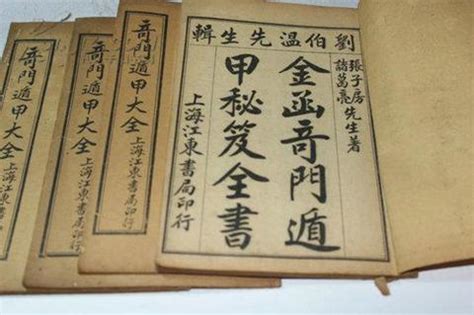 劉伯温先生輯
張子房
諸葛亮
先生著
金函竒門遁
甲秘笈全書
上海江東書局印行
竒門遁甲大全
上海江東書局印行
竒門遁甲大全
上海江東書局印行
竒門遁甲大全
上海江東書局